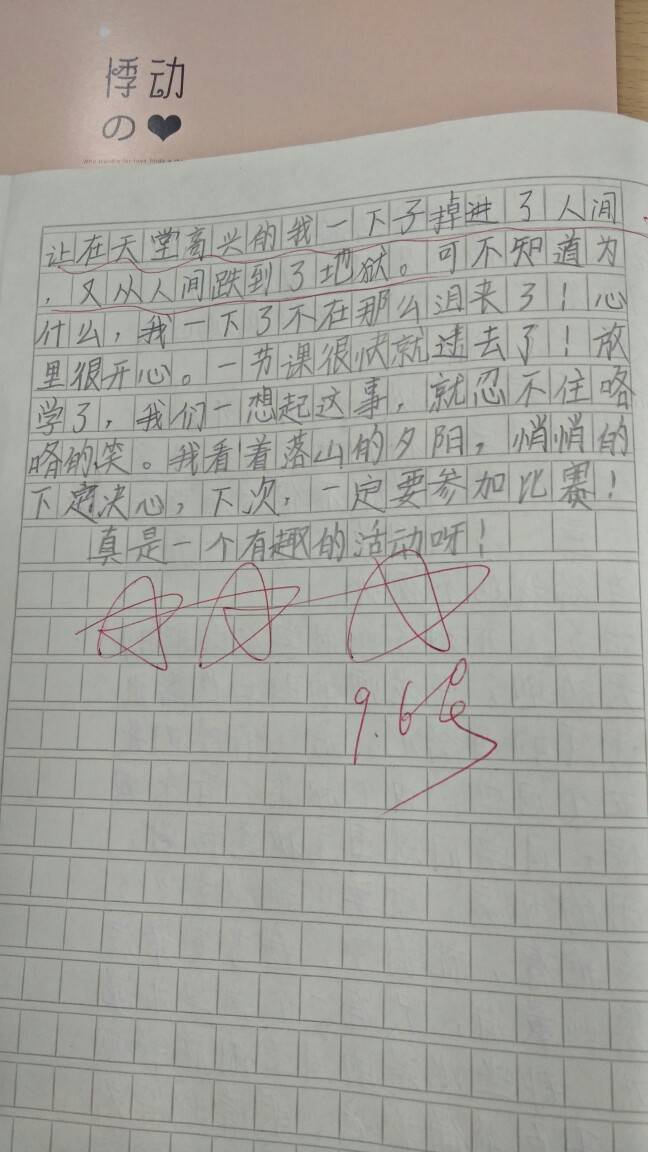 悸动
の❤
让在天堂高兴的我一下子掉进了人间
，又从人间跌到了地狱。可不知道为
什么，我一下子不在那么沮丧了！心
里很开心。一节课很快就过去了！放
学了，我们一想起这事，就忍不住咯
咯的笑。我看着落山的夕阳，悄悄的
下定决心，下次，一定要参加比赛！
真是一个有趣的活动呀！
9.6